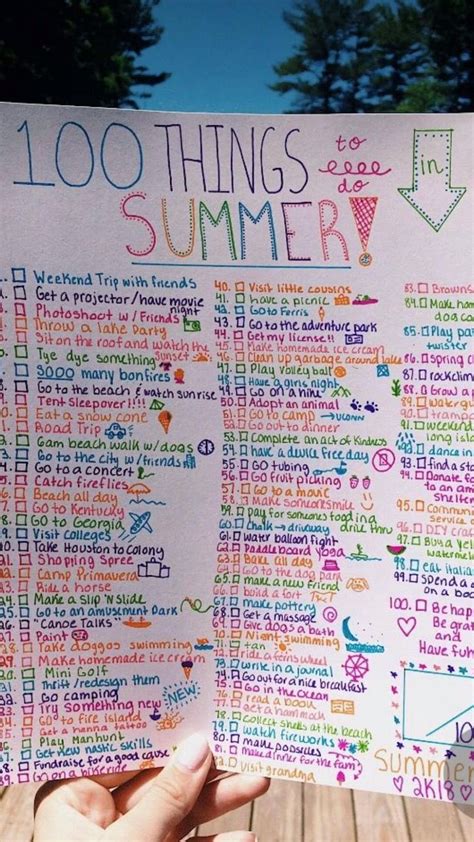 100 THINGS to do in
SUMMER!
Weekend Trip with friends
Get a projector/have movie night
Photoshoot w/Friends
Throw a lake Party
Sit on the roof and watch the sunset
Tye dye something
3000 many bonfires
Go to the beach & watch sunrise
Tent Sleepover!!!
10. Eat a snow cone
11. Road Trip
12. 6am beach walk w/dogs
13. Go to the city w/friends
14. Go to a concert
15. Catch fireflies
16. Beach all day
17. Go to Kentucky
18. Go to Georgia
19. Visit Colleges
20. Take Houston to Colony
21. Shopping Spree
22. Camp Primavera
23. Ride a horse
24. Make Slip N Slide
25. Go to an amusement Park
26. "Canoe Talks"
27. Paint
28. Take doggos swimming
29. Make homemade ice cream
30. Mini Golf
31. Thrift/redesign them
32. Go camping
33. Try something new NEW!
34. Go to fire island
35. Get a henna tattoo
36. Play Manhunt
37. Get new nastic skills
38. Fundraise for a good cause
39. Go on a bike ride
40. Visit little cousins
41. have a picnic
42. Go to Ferris
43. Go to the adventure park
44. Get my license!!
45. Make homemade ice cream
46. Clean up garbage around lake
47. Play Volley ball
48. Have a girls night
49. Go on a hike
50. Adopt an animal
51. Go to camp UCONN
52. Go out to dinner
53. Complete an act of kindness
54. have a device free day
55. Go tubing
56. Go fruit picking
57. Go to a movie
58. Make someone smile
59. Pay for someone's food in a drive thru
60. Chalk driveway
61. water balloon fight
62. Paddleboard yoga
63. Bake all day
64. Go to the dog park
65. make a new friend
66. build a fort
67. make pottery
68. Get a massage
69. Give dogs a bath
70. Night swimming
71. tan
72. ride a ferris wheel
73. write in a journal
74. Go out for a nice breakfast
75. Go in the ocean
76. read a book
77. get a hammock
78. collect shells at the beach
79. watch fireworks
80. make popsicles
81. make dinner for the fam
82. visit grandma
83. Browns
84. Make hom
dog coo
85. Play
twister
86. spring c
87. rockclim
88. Grow a p
90. tramp
91. weekend
Long islan
92. dance in
93. find a st
94. Donate fo
to an an
shelter
95. Communi
servic
96. DIY craf
97. Buy a
watermelo
98. eat italia
99. Spend a
on a bo
100. Be hap
Be grat
and
Have fun
10
Summer
2K18